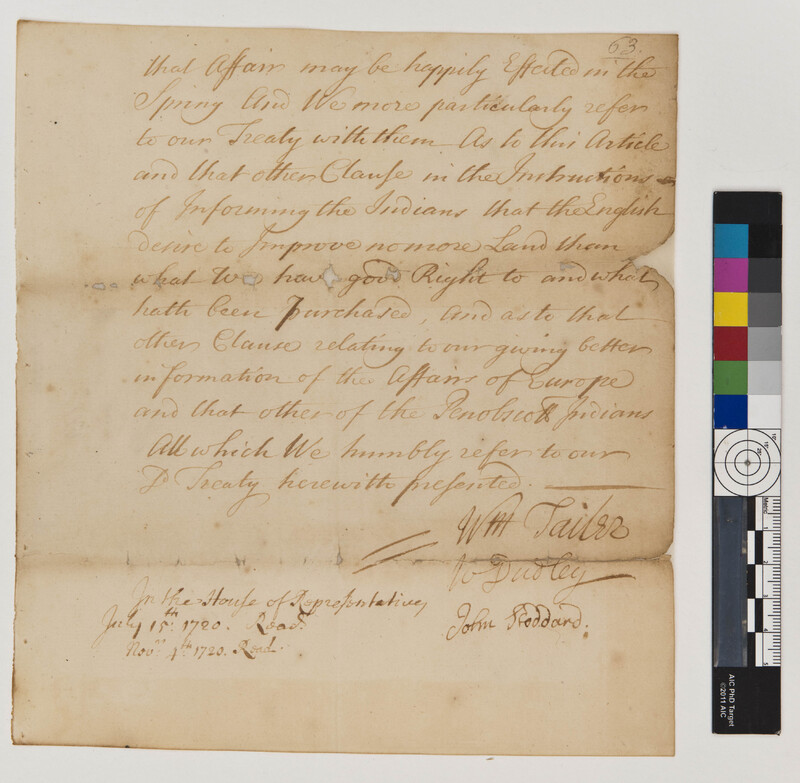 63.
that Affair may be happily Effected in the
Spring And We more particularly refer
to our Treaty with them As to this Article
and that other Clause in the Instructions
of Informing the Indians that the English
desire to Improve no more Land than
what We have good Right to and what
hath been purchased, and as to that
other Clause relating to our giving better
information of the Affairs of Europe
and that other of the Penobscott Indians
All which We humbly refer to our
Sd Treaty herewith presented.
Wm Tailer
W Dudley
John Stoddard.
In the House of Representatives
July 15th. 1720. Read.
Novr. 4th 1720. Read.
AIC PhD Target
©2011 AIC
Metric
1
2
3
4
5